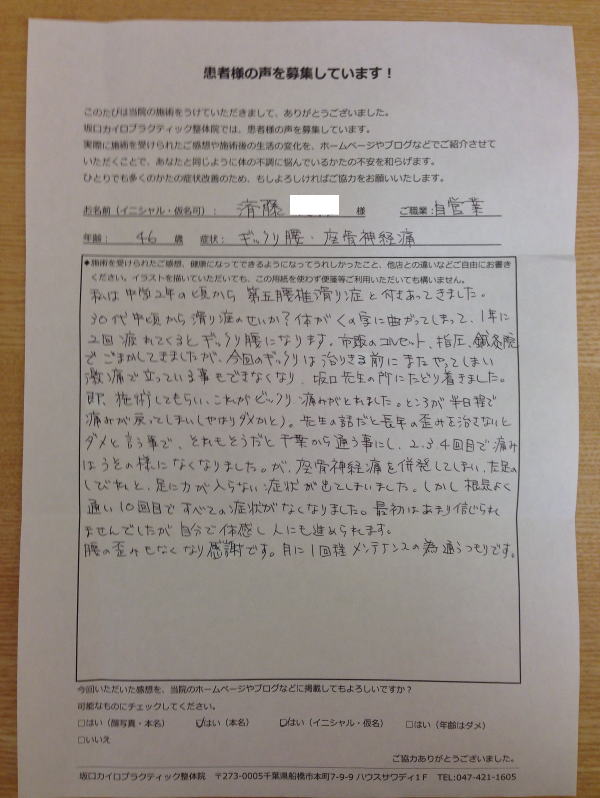 患者様の声を募集しています！
このたびは当院の施術をうけていただきまして、ありがとうございました。
坂口カイロプラクティック整体院では、患者様の声を募集しています。
実際に施術を受けられたご感想や施術後の生活の変化を、ホームページやブログなどでご紹介させて
いただくことで、あなたと同じように体の不調に悩んでいるかたの不安を和らげます。
ひとりでも多くのかたの症状改善のため、もしよろしければご協力をお願いいたします。
お名前（イニシャル・仮名可）： 済藤 様 ご職業：自営業
年齢： 46 歳 症状： ギックリ腰・座骨神経痛
◆施術を受けられたご感想、健康になってできるようになってうれしかったこと、他店との違いなどご自由にお書き
ください。イラストを描いていただいても、この用紙を使わず便箋等ご利用いただいても構いません。
私は中学2年の頃から 第五腰椎滑り症と付きあってきました。
30代中頃から滑り症のせいか?体がくの字に曲がってしまって、1年に
2回疲れてくるとギックリ腰になります。市販のコルセット、指圧、鍼灸院
でごまかしてきましたが、今回のギックリは治りきる前にまたやってしまい
激痛で立っている事もできなくなり、坂口先生の所にたどり着きました。
即、施術してもらい、これがビックリ痛みがとれました。ところが半日程で
痛みが戻ってしまい(やはりダメかと)。先生の話だと長年の歪みを治さないと
ダメと言う事で、それもそうだと千葉から通う事にし、2.3.4回目で痛み
はうその様になくなりました。が、座骨神経痛を併発してしまい、左足の
しびれと、足に力が入らない症状が出てしまいました。しかし根気よく
通い10回目ですべての症状がなくなりました。最初はあまり信じられ
ませんでしたが自分で体感し人にも進められます。
腰の歪みもなくなり感謝です。月に1回程メンテナンスの為通うつもりです。
今回いただいた感想を、当院のホームページやブログなどに掲載してもよろしいですか？
可能なものにチェックしてください。
□はい（顔写真・本名） ☑はい（本名） ☑はい（イニシャル・仮名） □はい（年齢はダメ）
□いいえ
ご協力ありがとうございました。
坂口カイロプラクティック整体院 〒273-0005千葉県船橋市本町7-9-9 ハウスサワディ1F TEL:047-421-1605